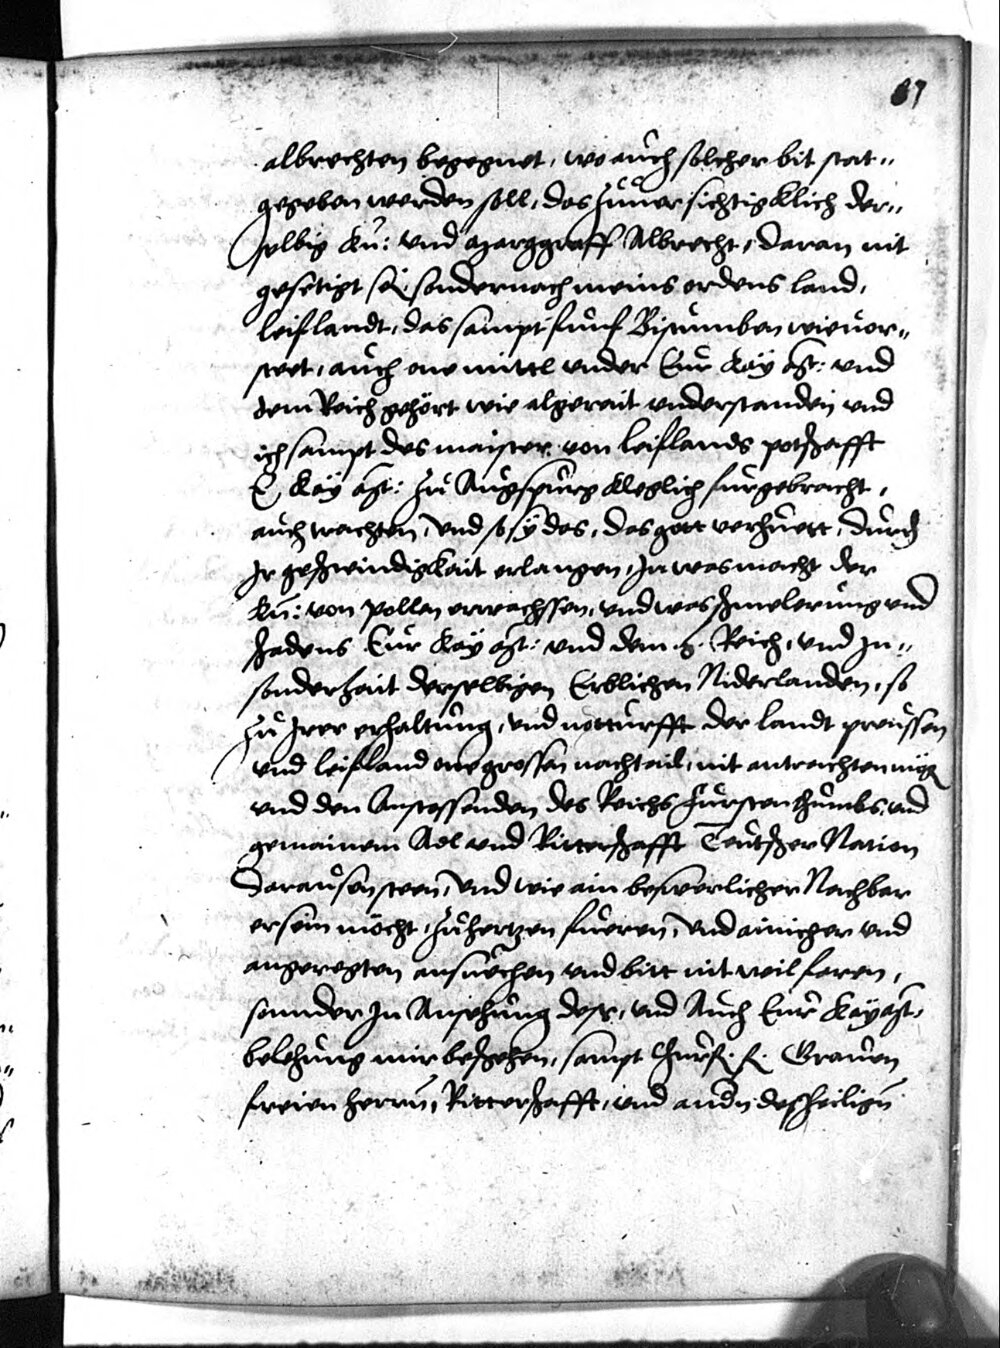 87
albrechten begegnet, wo auch solcher bit stat„
gegeben werden soll, das zuuersichtigklich der„
selbig Kü: vnd Marggraff Albrecht, daran nit
gesetigt sej, sonder nach meins ordens land,
leiflandt, das sampt funf Bistumben wie uor„
steet, auch one mittl vnder Eur Kay Mt: vnd
dem Reich gehört wie algerait vnderstanden vnd
ich sampt des maister von leiflands potschafft
E Kay Mt: zu Augspurg kleglich furgebracht,
auch trachten, vnd so sy das, das gott verhuett, durch
Ir geschwindigkait erlangen, In was macht der
Kü: von Pollen erwachssen, vnd was schmelerung vnd
schadens Eur Kay Mt: vnd dem h. Reich, vnd In„
sonderhait derselbigen Erblichen Niderlanden, so
zu Irer erhaltung, vnd notturfft der landt preussen
vnd leifland one grossen nachtail, nit entraichten mög
vnd den Anstossenden des Reichs Furstenthumbs, vnd
gemainem Adl vnd Ritterschafft Teutscher Nation
Daraus ensteen, vnd wie ain beswerlicher Nachbar
er sein möcht, zu hertzen fueren, vnd ainicher vnd
angeregten ansuechen vnd bitt nit wilfaren,
sonnder In Ansehung des, vnd Auch Eur Kay Mt,
belehung mir beschehen, sampt Churf. f. Grauen
freien herrn, Ritterschafft, vnd andn des heilign